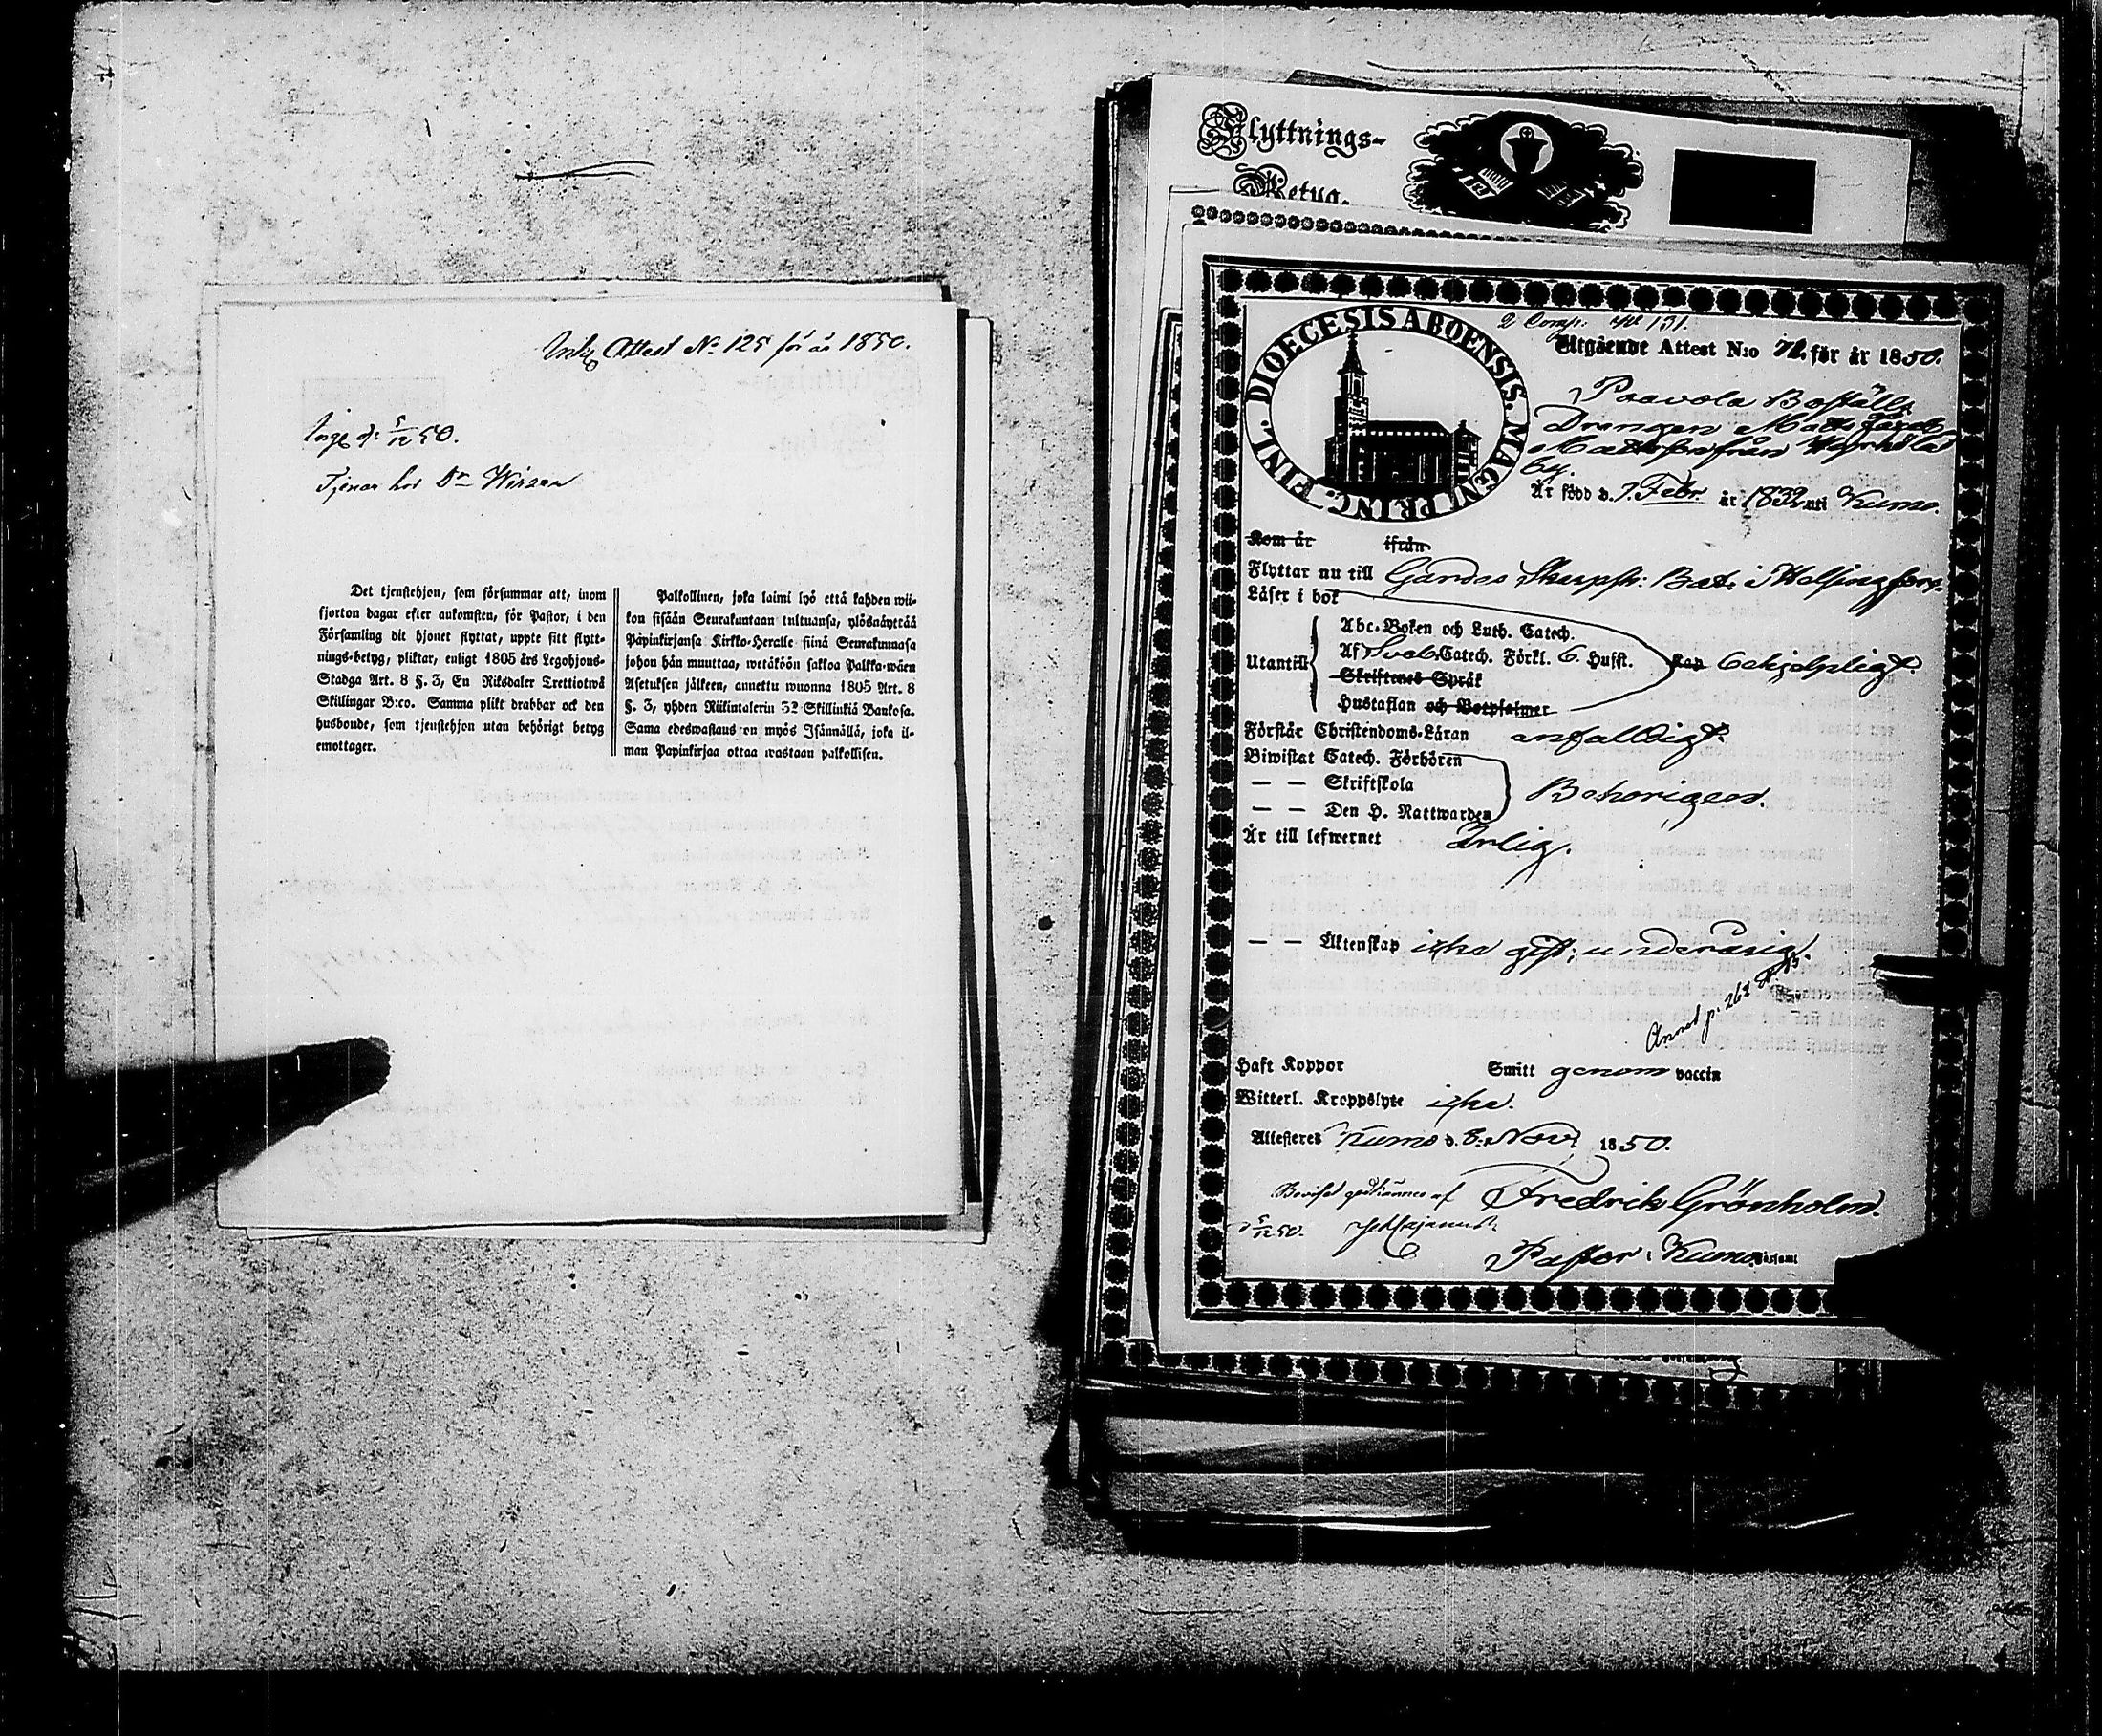 Attest No. 125 för år 1850.
d: 5/12 50.
Tjenar hos Wirzen
Det tjenstehjon, som försummar att, inom
fjorton dagar efter ankomsten, för Pastor, i den
Församling dit hjonet flyttat, uppte sitt flytt-
nings-betyg, pliktar, enligt 1805 års Legohjons-
Stadga Art. 8 §. 3, En Riksdaler Trettiotwå
Skillingar B:co. Samma plikt drabbar ock den
husbonde, som tjenstehjon utan behörigt betyg
emottager.
Palkollinen, joka laimi lyö että kahden wii-
kon sisään Seurakuntaan tultuansa, ylösnäyttää
Papinkirjansa Kirkko-Heralle siinä Seurakunnasa
johon hän muuttaa, wetäköön sakkoa Palkka-wäen
Asetuksen jälkeen, annettu wuonna 1805 Art. 8
§. 3, yhden Riikintalerin 32 Skillinkiä Bankosa.
Sama edeswastaus on myös Isännällä, joka il-
man Papinkirjaa ottaa wastaan palkollisen.
Flyttnings-
Betyg.
FINL. DIOECESIS ABOENSIS. MAGNI PRINC.
2 Comp: No 151.
Utgående Attest N:o 72 för år 1850.
Paavola Boställs
Drengen Matts
från
by.
Är född d. 7. Febr. år 1832 uti Kumo.
Kom år ifrån
Flyttar nu till Gardes Skarpsk: Bat: i Helsingfors.
Läser i bok
Utantill
Abc-Boken och Luth. Catech.
Af Sveb. Catech. Förkl. 6 Hufst.
Skriftenes Språk
Hustaflan och Botpsalmer
Kan
Förstår Christendoms-Läran enfalldigt.
Biwistat Catech. Förhören
— — Skriftskola
— — Den H. Nattwarden
Behörigen.
Är till lefwernet Ärlig.
— — Äktenskap icke gift; underårig.
p. 262
Haft Koppor Smitt genom vaccin
Witterl. Kroppslyte icke.
Attesteres Kumo d. 8. Nov. 1850.
Beviset godkännes af
d 5/12 50.
Fredrik Grönholm.
Pastor i Kumo